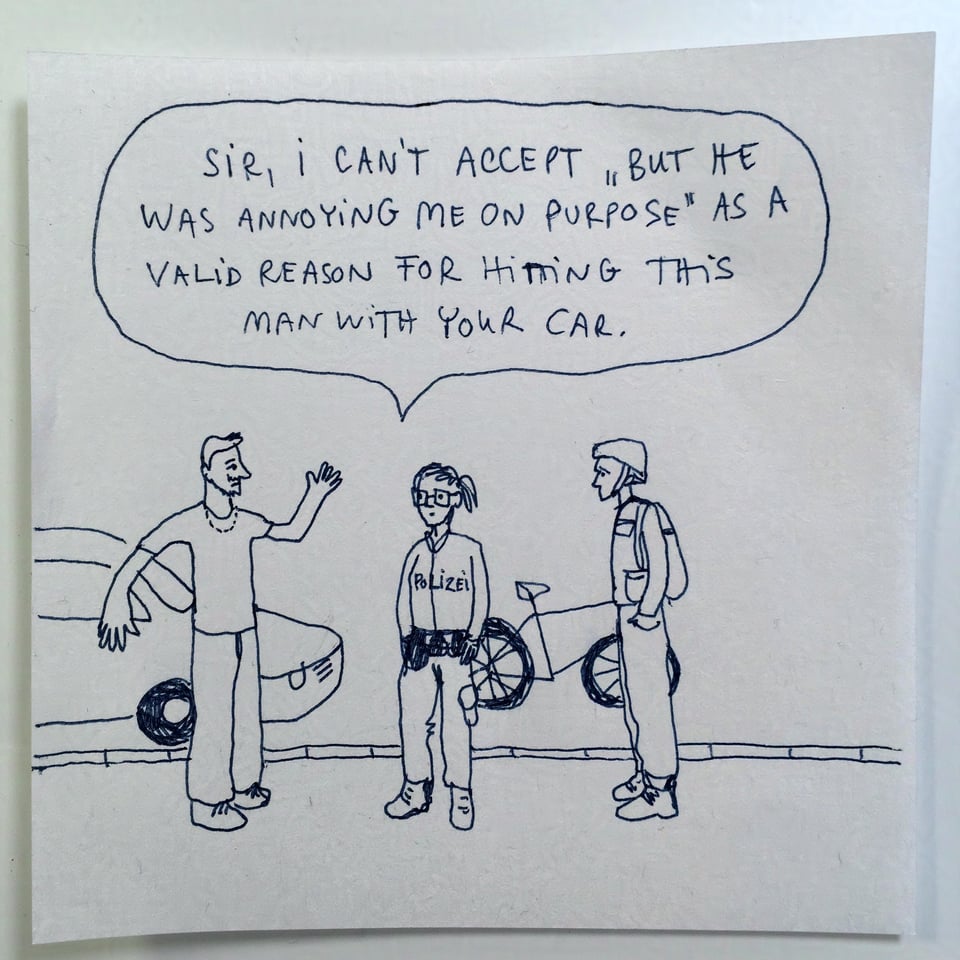 SIR, I CAN'T ACCEPT „BUT HE
WAS ANNOYING ME ON PURPOSE" AS A
VALID REASON FOR HITTING THIS
MAN WITH YOUR CAR.
POLIZEI